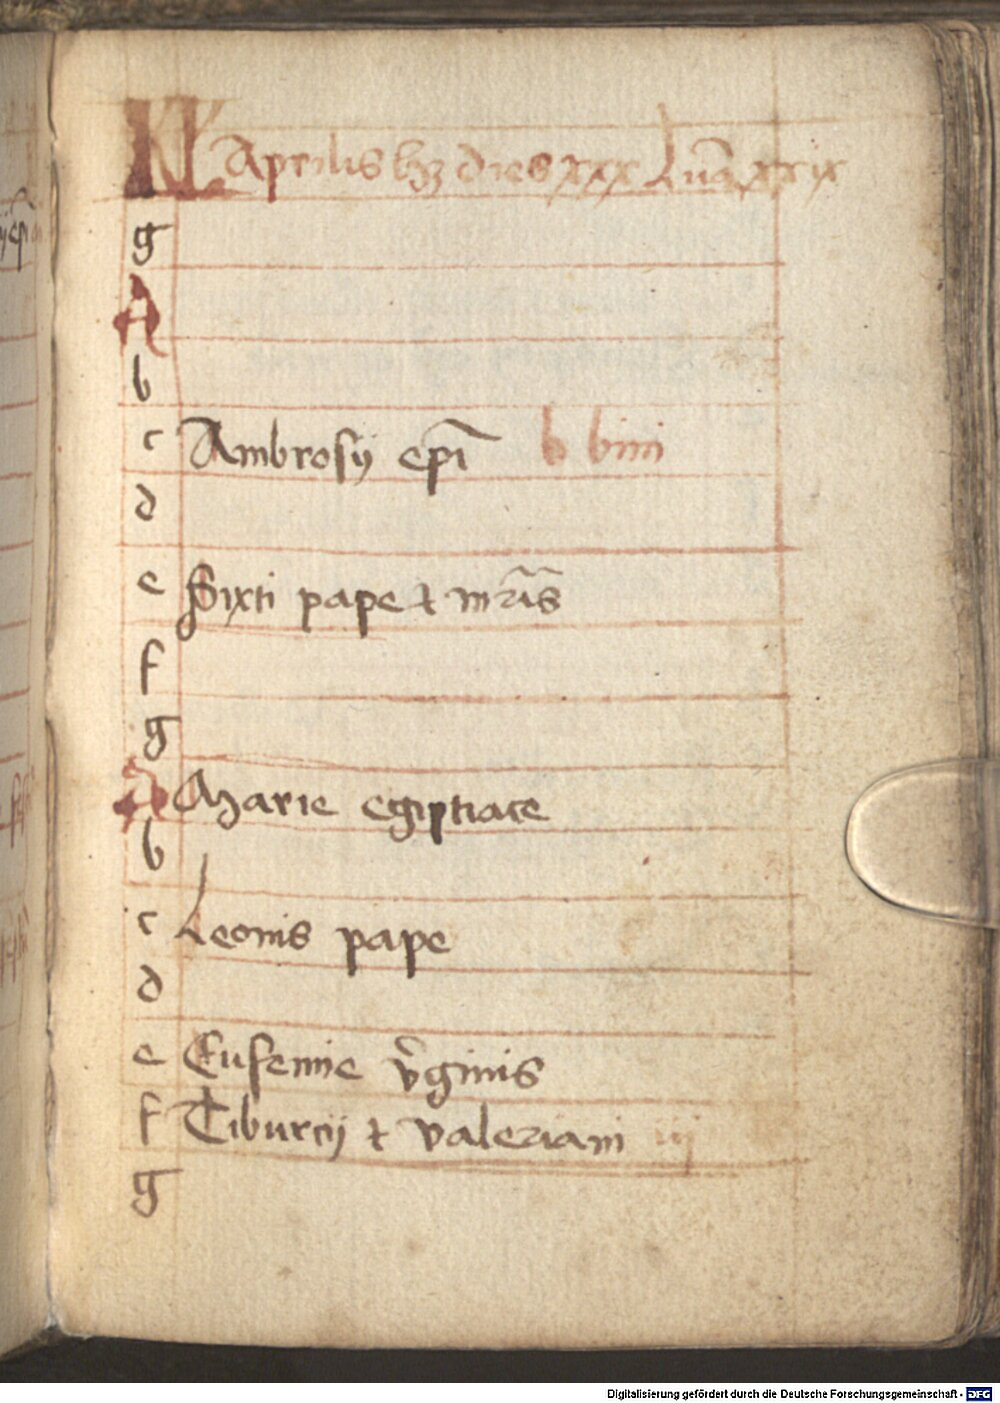 KL Aprilis hꝫ dies xxx Luã xxix
g
A
b
c Ambrosij epĩ b bini
d
e Sixti pape et mr̃is
f
g
A Marie egiptiace
b
c Leonis pape
d
e Eufemie v̾ginis
f Tiburcij et valeriani iij
g
Digitalisierung gefördert durch die Deutsche Forschungsgemeinschaft - DFG